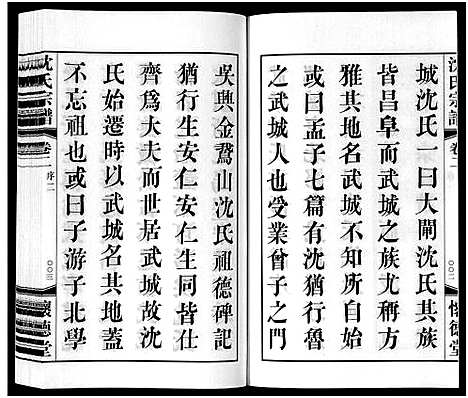 沈氏宗譜
卷二
〇〇二
懷德堂
城沈氏一曰大閘沈氏其族
皆昌阜而武城之族尤稱方
雅其地名武城不知所自始
或曰孟子七篇有沈猶行魯
之武城人也受業曾子之門
吳興金鵞山沈氏祖德碑記
猶行生安仁安仁生同皆仕
齊爲大夫世居武城故沈
氏始遷時以武城名其地蓋
不忘祖也或曰子游子北學
沈氏宗譜
卷二
序二
〇〇三
懷德堂